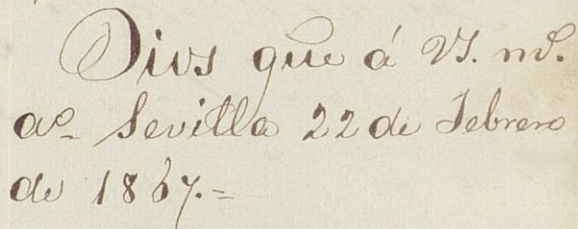 Dios gue á VS. ms.
as. Sevilla 22 de Febrero
de 1867.=